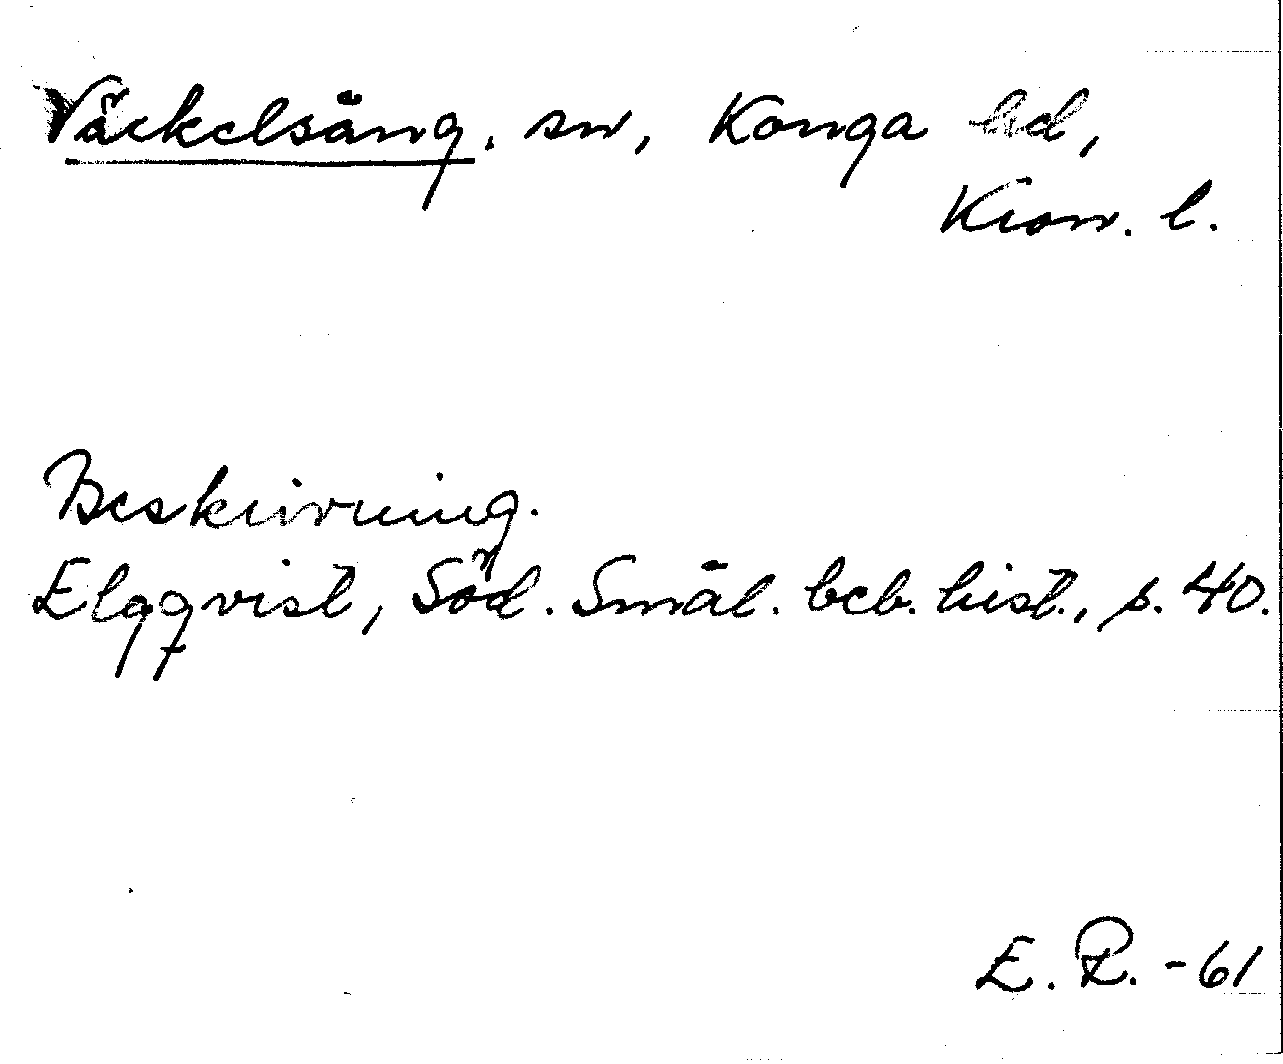 Väckelsång, sn, Konga hd,
Kron. l.
Beskrivning.
Elgqvist, Söd. Smål. beb. hist., s. 40.
E. P. -61